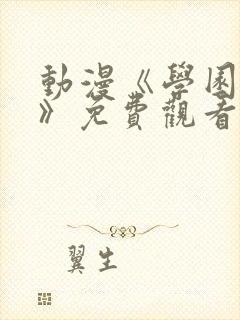 動漫《學園
》免費觀看
翼生